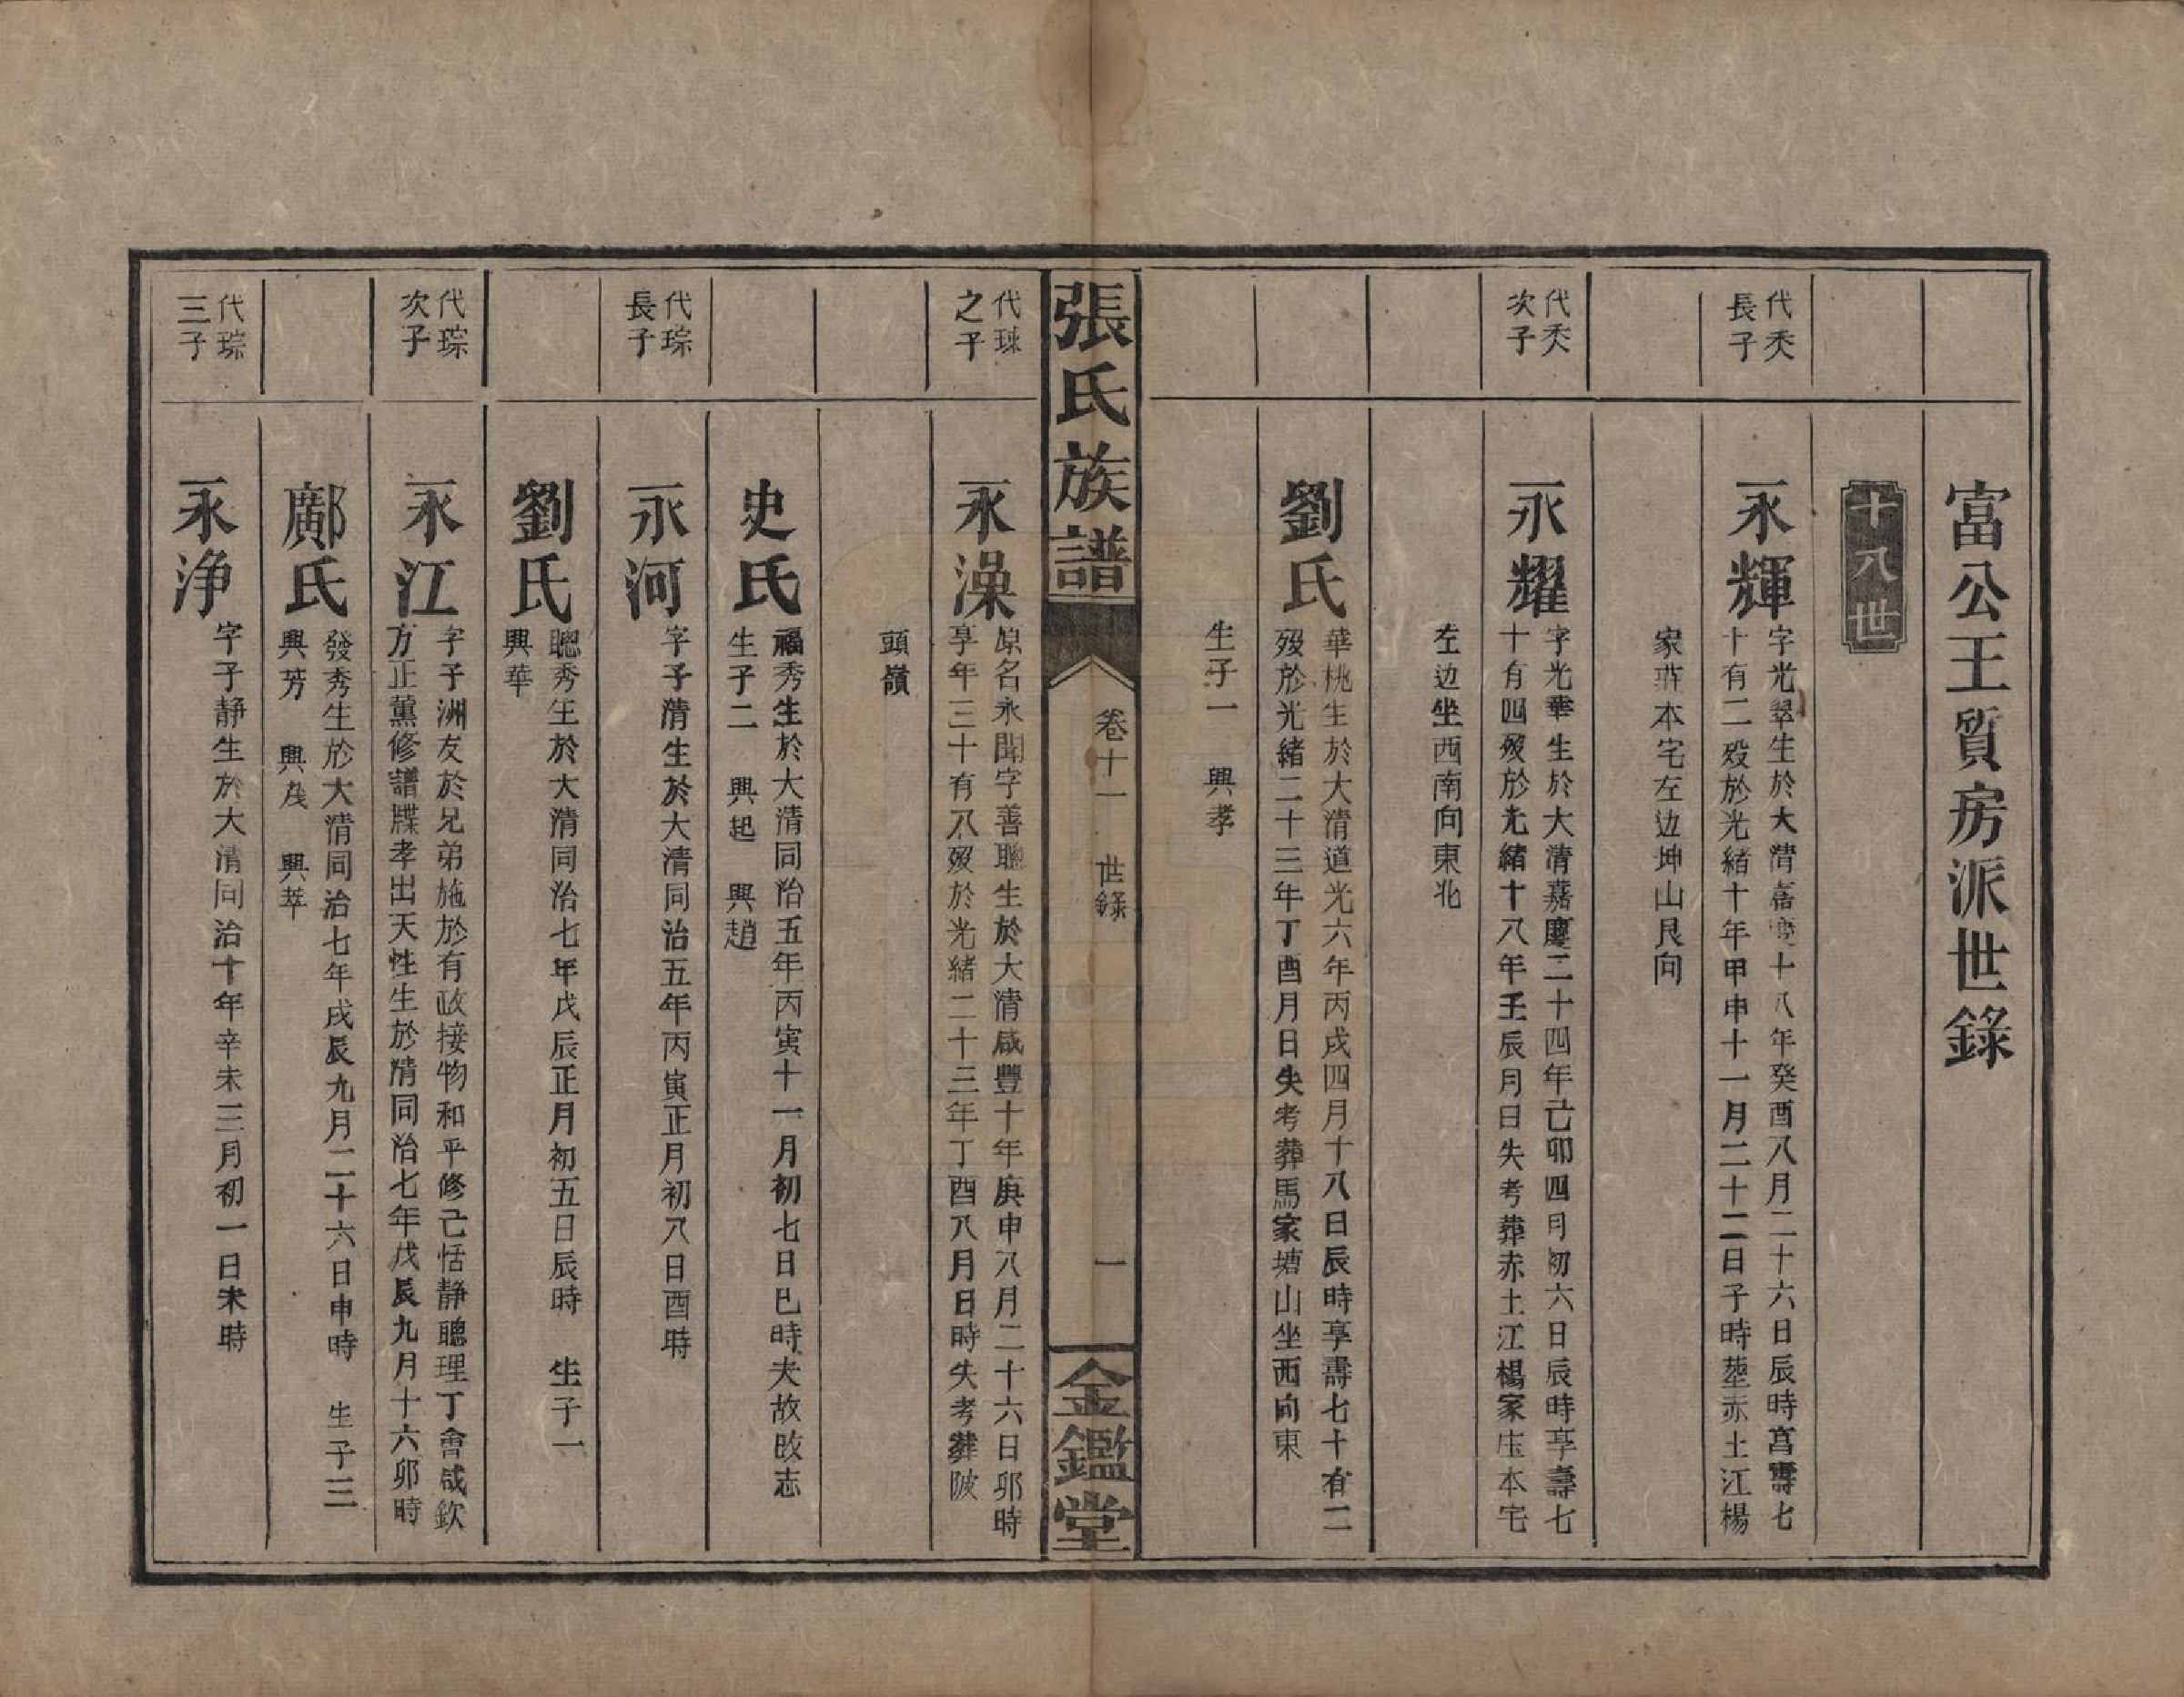 富公王質房派世錄
十八世
代奀
長子
永輝
字光翠生於大清嘉慶十八年癸酉八月二十六日辰時享壽七
十有二殁於光緒十年甲申十一月二十二日子時塟赤土江楊
家莊本宅左边坤山艮向
代奀
次子
永耀
字光華生於大清嘉慶二十四年己卯四月初六日辰時享壽七
十有四殁於光緒十八年壬辰月日失考葬赤土江楊家庄本宅
左边坐西南向東北
劉氏
華桃生於大清道光六年丙戌四月十八日辰時享壽七十有二
殁於光緒二十三年丁酉月日失考葬馬家塘山坐西向東
生子一 興孝
張氏族譜
卷十一 世錄
一
金鑑堂
代琜
之子
永澡
原名永聞字善聰生於大清咸豐十年庚申八月二十六日卯時
享年三十有八殁於光緒二十三年丁酉八月日時失考葬陂
頭嶺
史氏
福秀生於大清同治五年丙寅十一月初七日巳時夫故改志
生子二 興起 興趙
代琮
長子
永河
字子清生於大清同治五年丙寅正月初八日酉時
劉氏
聰秀生於大清同治七年戊辰正月初五日辰時 生子一
興華
代琮
次子
永江
字子洲友於兄弟施於有政接物和平修己恬静聽理丁會咸欽
方正薰修譜牒孝出天性生於清同治七年戊辰九月十六卯時
鄺氏
發秀生於大清同治七年戌辰九月二十六日申時 生子三
興芳 興㦮 興萃
代琮
三子
永浄
字子静生於大清同治十年辛未三月初一日未時